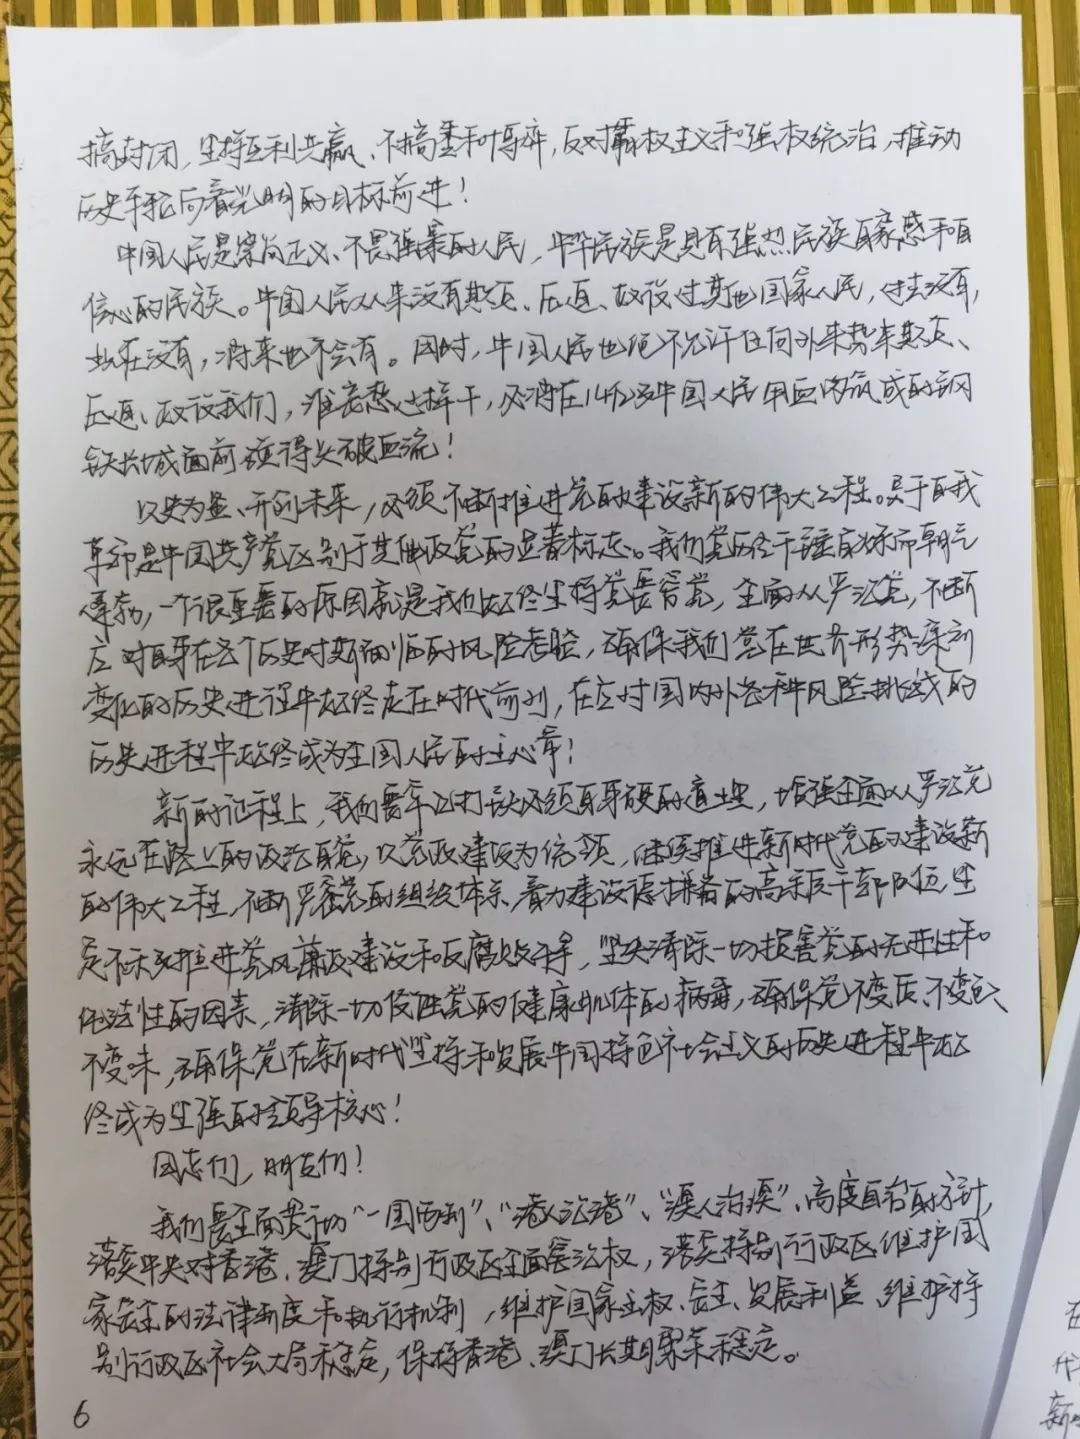 搞封闭，坚持互利共赢、不搞零和博弈，反对霸权主义和强权统治，推动
历史车轮向着光明的目标前进！
中国人民是崇尚正义、不畏强暴的人民，中华民族是具有强烈民族自豪感和自
信心的民族。中国人民从来没有欺负、压迫、奴役过其他国家人民，过去没有，
现在没有，将来也不会有。同时，中国人民也绝不允许任何外来势力欺负、
压迫、奴役我们，谁妄想这样干，必将在14亿多中国人民用血肉筑成的钢
铁长城面前碰得头破血流！
以史为鉴、开创未来，必须不断推进党的建设新的伟大工程。勇于自我
革命是中国共产党区别于其他政党的显著标志。我们党历经千锤百炼而朝气
蓬勃，一个很重要的原因就是我们始终坚持党要管党，全面从严治党，不断
应对自身在各个历史时期面临的风险考验，确保我们党在世界形势深刻
变化的历史进程中始终走在时代前列，在应对国内外各种风险挑战的
历史进程中始终成为全国人民的主心骨！
新的征程上，我们要牢记打铁必须自身硬的道理，增强全面从严治党
永远在路上的政治自觉，以党政建设为统领，继续推进新时代党的建设新
的伟大工程，不断严密党的组织体系，着力建设德才兼备的高素质干部队伍，坚
定不移推进党风廉政建设和反腐败斗争，坚决清除一切损害党的先进性和
纯洁性的因素，清除一切侵蚀党的健康肌体的病毒，确保党不变质、不变色、
不变味，确保党在新时代坚持和发展中国特色社会主义的历史进程中始
终成为坚强的领导核心！
同志们，朋友们！
我们要全面贯彻“一国两制”、“港人治港”、“澳人治澳”、高度自治的方针，
落实中央对香港、澳门特别行政区全面管治权，落实特别行政区维护国
家安全的法律制度和执行机制，维护国家主权、安全、发展利益、维护特
别行政区社会大局稳定，保持香港、澳门长期繁荣稳定。
6
在
代
新